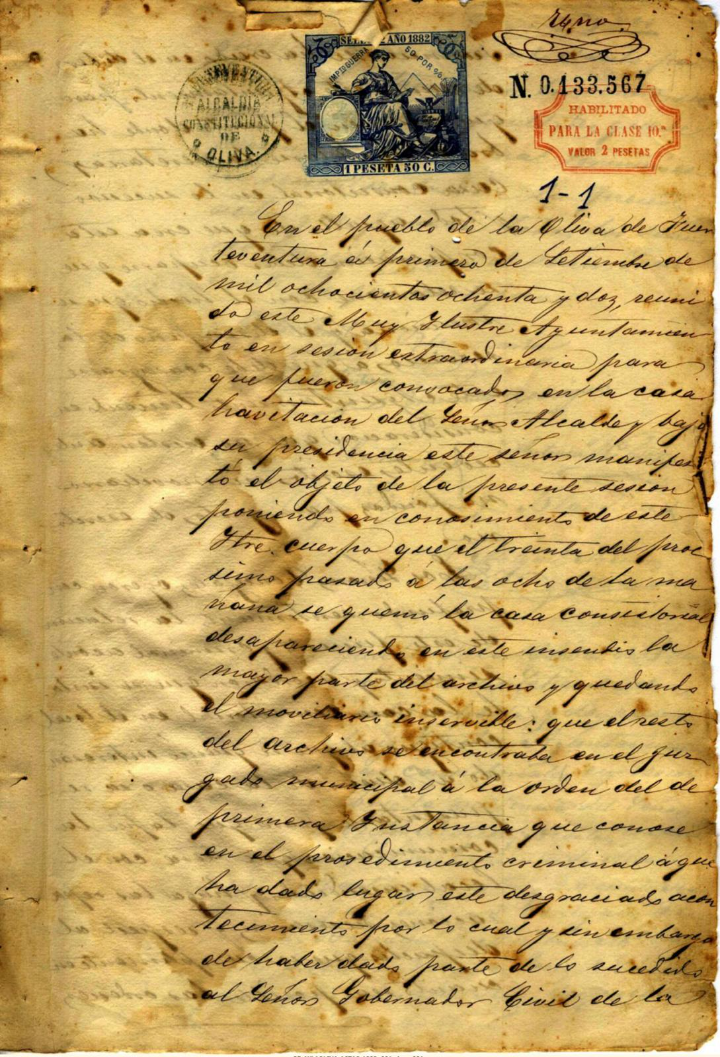 SELLO 10º AÑO 1882
IMPTO GUERRA 50 POR %
1 PESETA 50 C.
FUERTEVENTURA
ALCALDIA
CONSTITUCIONAL
DE
OLIVA.
N. 0.133.567
HABILITADO
PARA LA CLASE 10.ª
VALOR 2 PESETAS
1-1
En el pueblo de la Oliva de Fuer
teventura á primero de Setiembre de
mil ochocientos ochenta y dos, reuni
do este Muy Ilustre Ayuntamien
to en sesion extraordinaria para
que fueron convocados en la casa
havitacion del Señor Alcalde y bajo
su presidencia este señor manifes
tó el objeto de la presente sesion
poniendo en conosimiento de este
Iltre. cuerpo que el treinta del proc
simo pasado á las ocho de la ma
ñana se quemó la casa consistorial
desapareciendo en este insendio la
mayor parte del archivo y quedando
el moviliario inserville: que el resto
del archivo se encontraba en el juz
gado municipal á la orden del de
primera Instancia que conose
en el prosedimiento criminal á que
ha dado lugar este desgraciado acon
tecimiento por lo cual y sin embargo
de haber dado parte de lo sucedido
al Señor Gobernador Civil de la